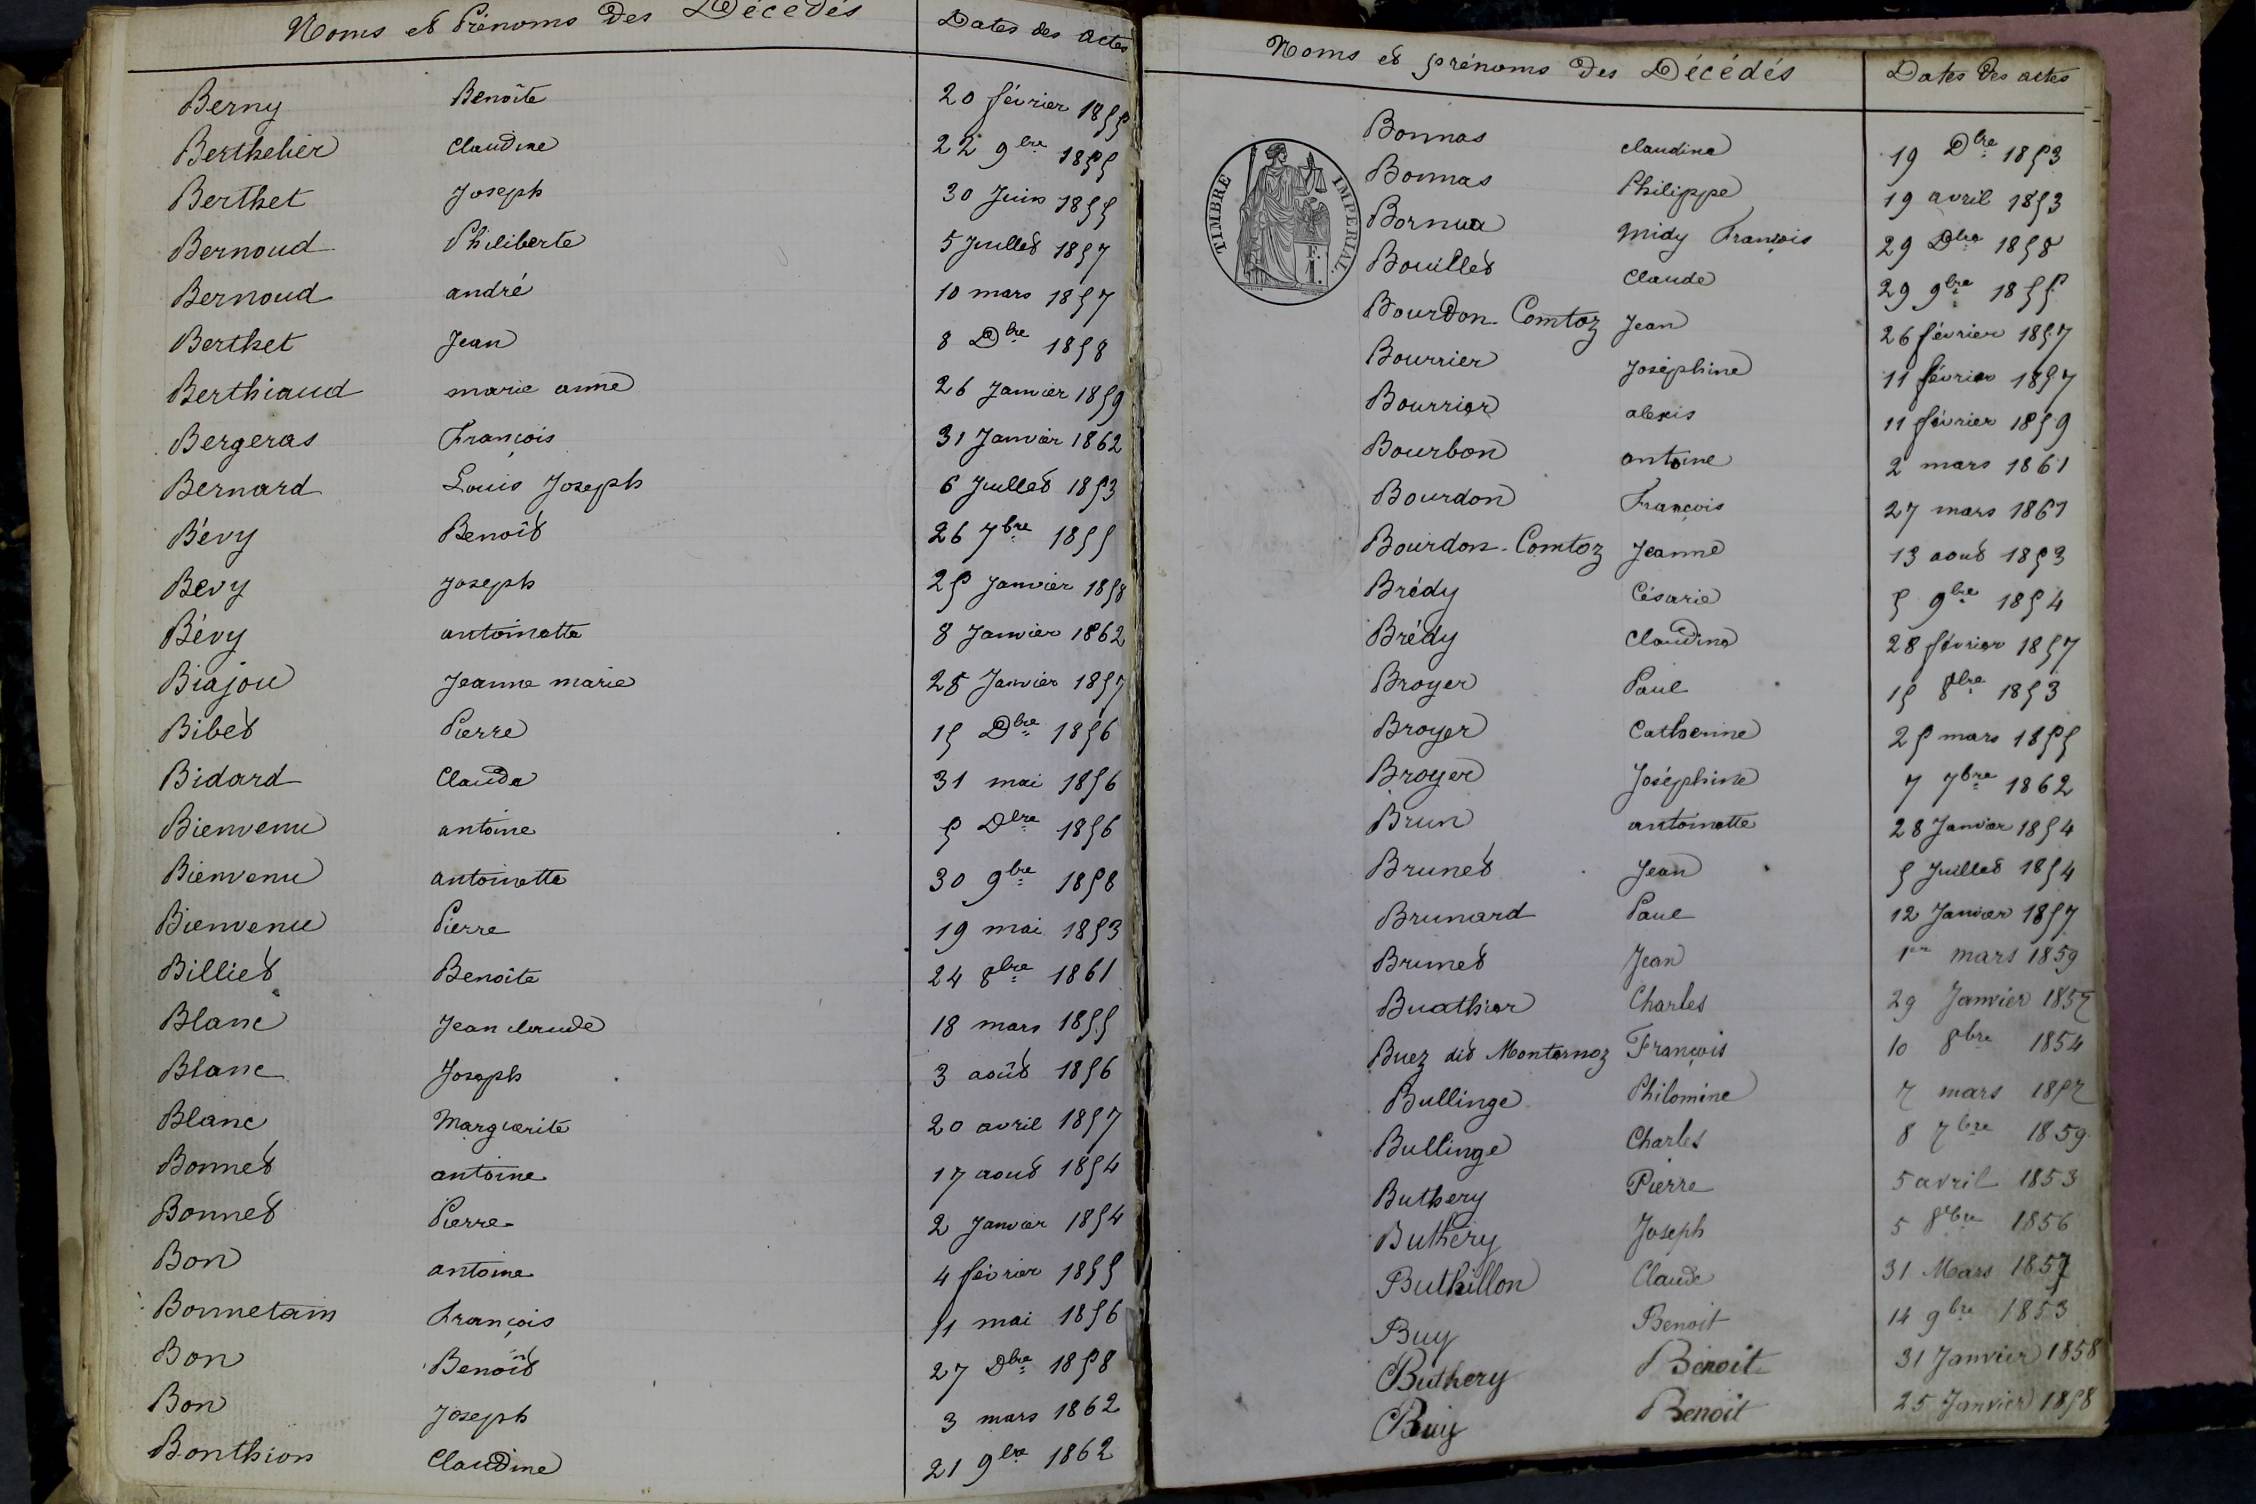 Noms et Prénoms des Décédés Dates des actes
Berny Benoîte 20 février 1855
Berthelier Claudine 22 9bre 1855
Berthet Joseph 30 Juin 1855
Bernoud Philiberte 5 Juillet 1857
Bernoud andré 10 mars 1857
Berthet Jean 8 Dbre 1858
Berthiaud marie anne 26 Janvier 1859
Bergeras François 31 Janvier 1862
Bernard Louis Joseph 6 Juillet 1853
Bévy Benoît 26 7bre 1855
Bevy Joseph 25 Janvier 1858
Bévy antoinette 8 Janvier 1862
Biajou Jeanne marie 28 Janvier 1857
Bibet Pierre 15 Dbre 1856
Bidard Claude 31 mai 1856
Bienvenu antoine 5 Dbre 1856
Bienvenu antoinette 30 9bre 1858
Bienvenu Pierre 19 mai 1853
Billiet Benoîte 24 8bre 1861
Blanc Jean claude 18 mars 1855
Blanc Joseph 3 août 1856
Blanc Marguerite 20 avril 1857
Bonnet antoine 17 aout 1854
Bonnet Pierre 2 Janvier 1854
Bon antoine 4 février 1855
Bonnetain François 11 mai 1856
Bon Benoît 27 Dbre 1858
Bon Joseph 3 mars 1862
Bonthion Claudine 21 9bre 1862
Noms et prénoms des Décédés Dates des actes
TIMBRE IMPERIAL.
Bonnas claudine 19 Dbre 1853
Bonnas Philippe 19 avril 1853
Bornua Midy François 29 Dbre 1858
Bouillet Claude 29 9bre 1855
Bourdon-Comtoz Jean 26 février 1857
Bourrier Joséphine 11 février 1857
Bourrier alexis 11 février 1859
Bourbon antoine 2 mars 1861
Bourdon François 27 mars 1861
Bourdon-Comtoz Jeanne 13 aout 1853
Brédy Césarie 5 9bre 1854
Brédy Claudine 28 février 1857
Broyer Paul 15 8bre 1853
Broyer Catherine 25 mars 1855
Broyer Joséphine 7 7bre 1862
Brun antoinette 28 Janvier 1854
Brunet Jean 5 Juillet 1854
Brunard Paul 12 Janvier 1857
Brunet Jean 1er mars 1859
Buathier Charles 29 Janvier 1857
Buez dit Monternoz François 10 8bre 1854
Bullinge Philomine 7 mars 1857
Bullinge Charles 8 7bre 1859
Buthery Pierre 5 avril 1853
Buthery Joseph 5 8bre 1856
Buthillon Claude 31 Mars 1857
Buy Benoit 14 9bre 1853
Buthery Benoit 31 Janvier 1858
Buy Benoit 25 Janvier 1858